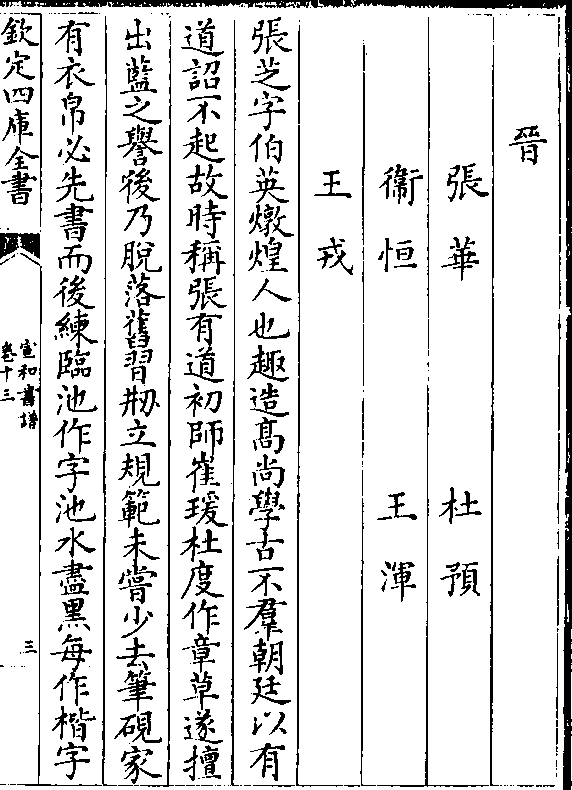 晉
張華　杜預
衞恒　王渾
王戎
張芝字伯英燉煌人也趣造髙尚學古不羣朝廷以有
道詔不起故時稱張有道初師崔瑗杜度作章草遂擅
出藍之譽後乃脫落舊習刱立規範未嘗少去筆硯家
有衣帛必先書而後練臨池作字池水盡黒每作楷字
欽定四庫全書
宣和書譜
卷十三
三